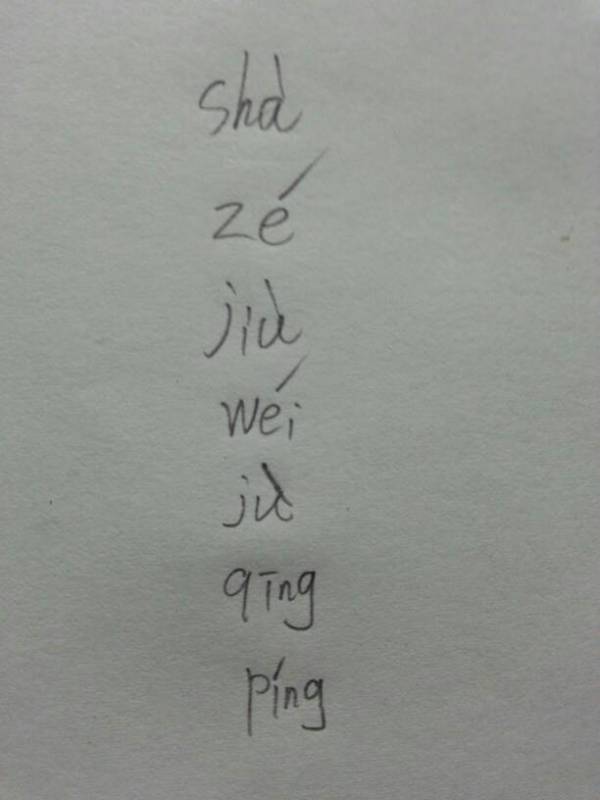 shà
zé
jiù
wéi
jù
qīng
píng